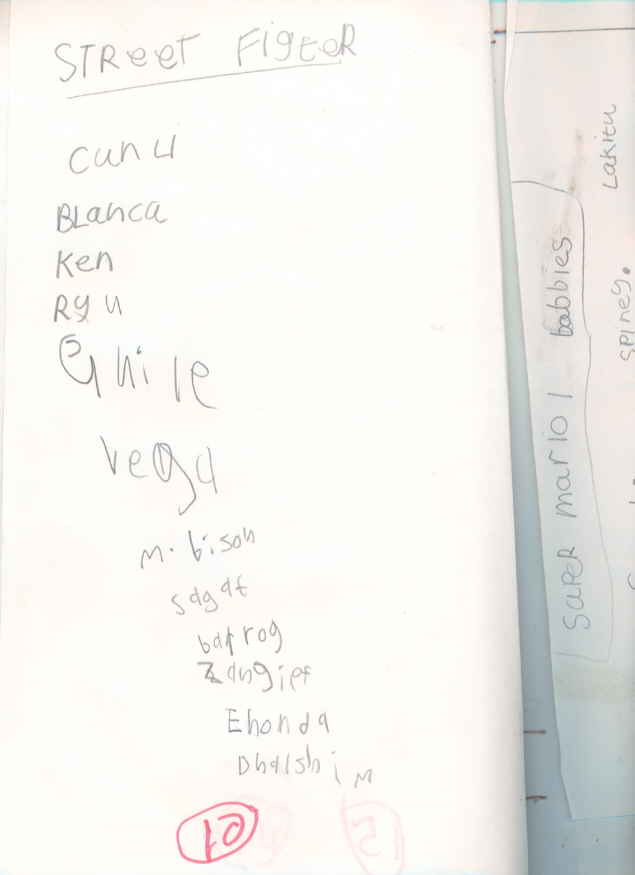 STReet FigteR
Cun Li
BLanca
Ken
Ryu
Ghile
vega
M. bison
sagat
bafrog
Zangief
Ehonda
Dhalshim
SuPeR mario 1 babbies
Lakitu
spiney.